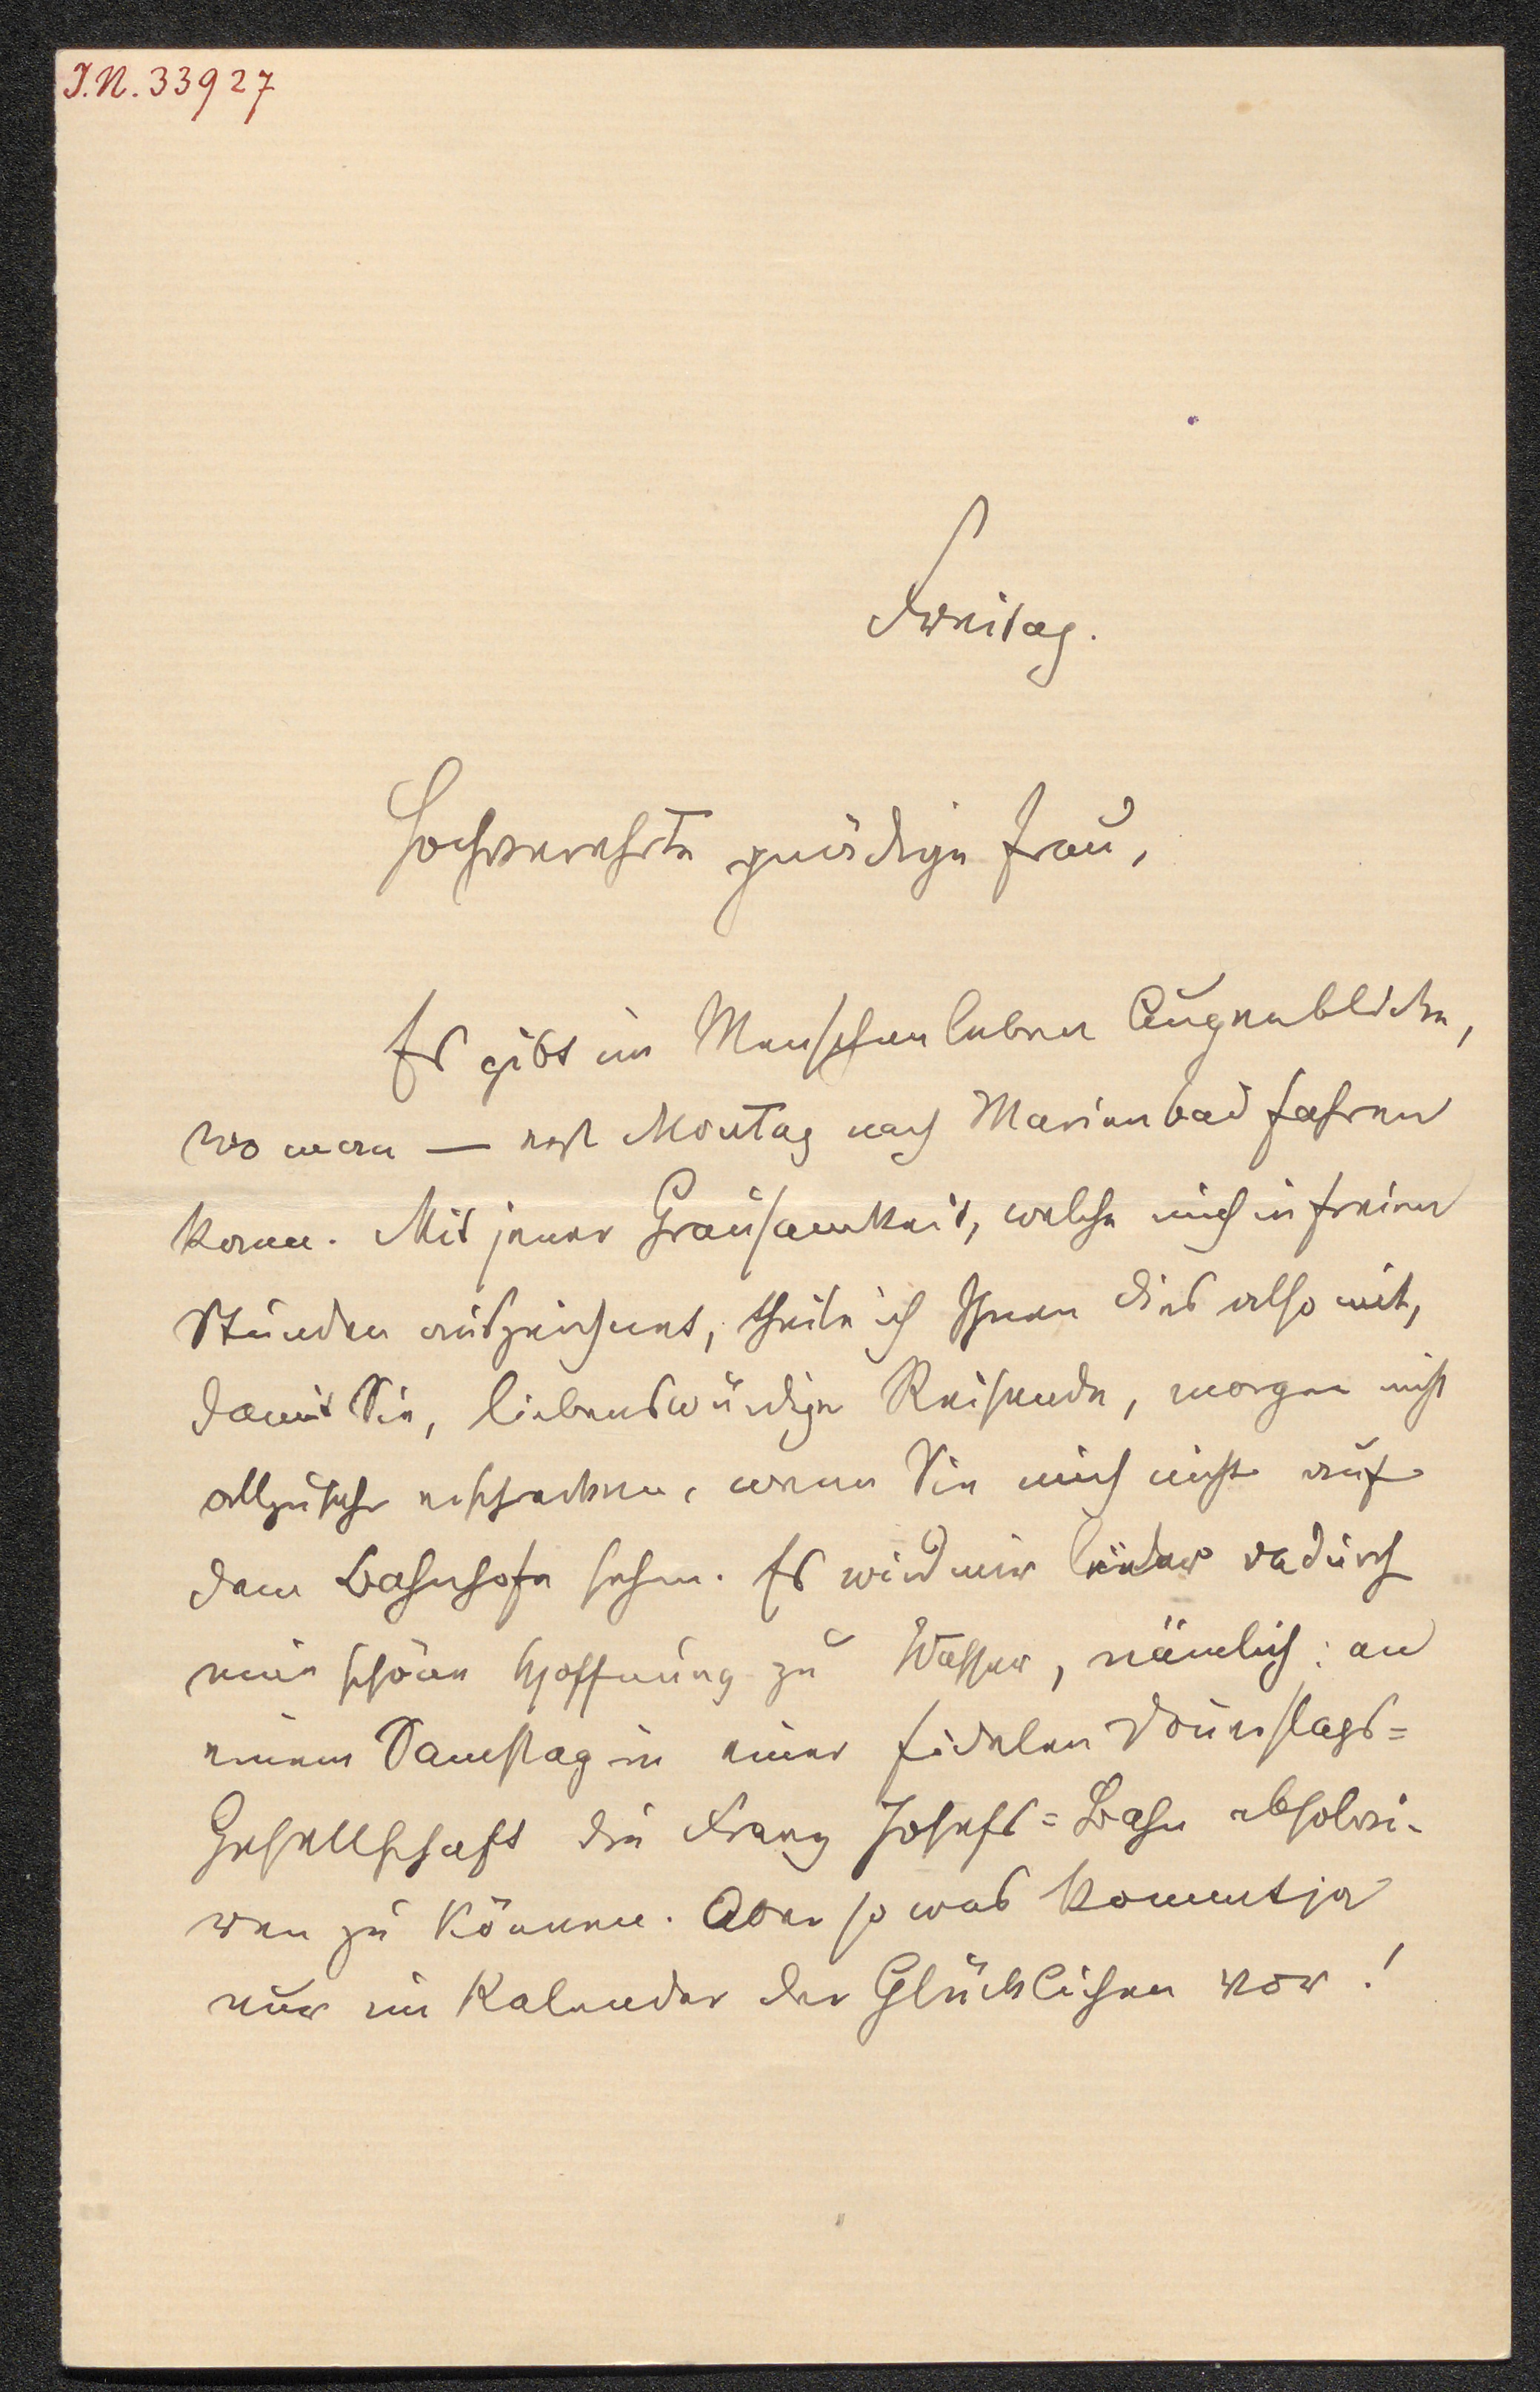 I.N. 33927
Freitag.
Hochverehrte gnädige Frau,
Es gibt im Menschenleben Augenblicke,
wo man — erst Montag nach Marienbad fahren
kann. Mit jener Grausamkeit, welche mich in freien
Stunden auszeichnet, theile ich Ihnen dies also mit,
damit Sie, liebenswürdige Reisende, morgen nicht
allzusehr erschrecken, wenn Sie mich nicht auf
dem Bahnhofe sehen. Es wird mir leider dadurch
eine schöne Hoffnung zu Wasser, nämlich: an
einem Samstag in einer fidelen Donnerstags=
Gesellschaft die Franz Josefs=Bahn absolvi-
ren zu können. Aber so was kommt ja
nur im Kalender der Glücklichen vor!